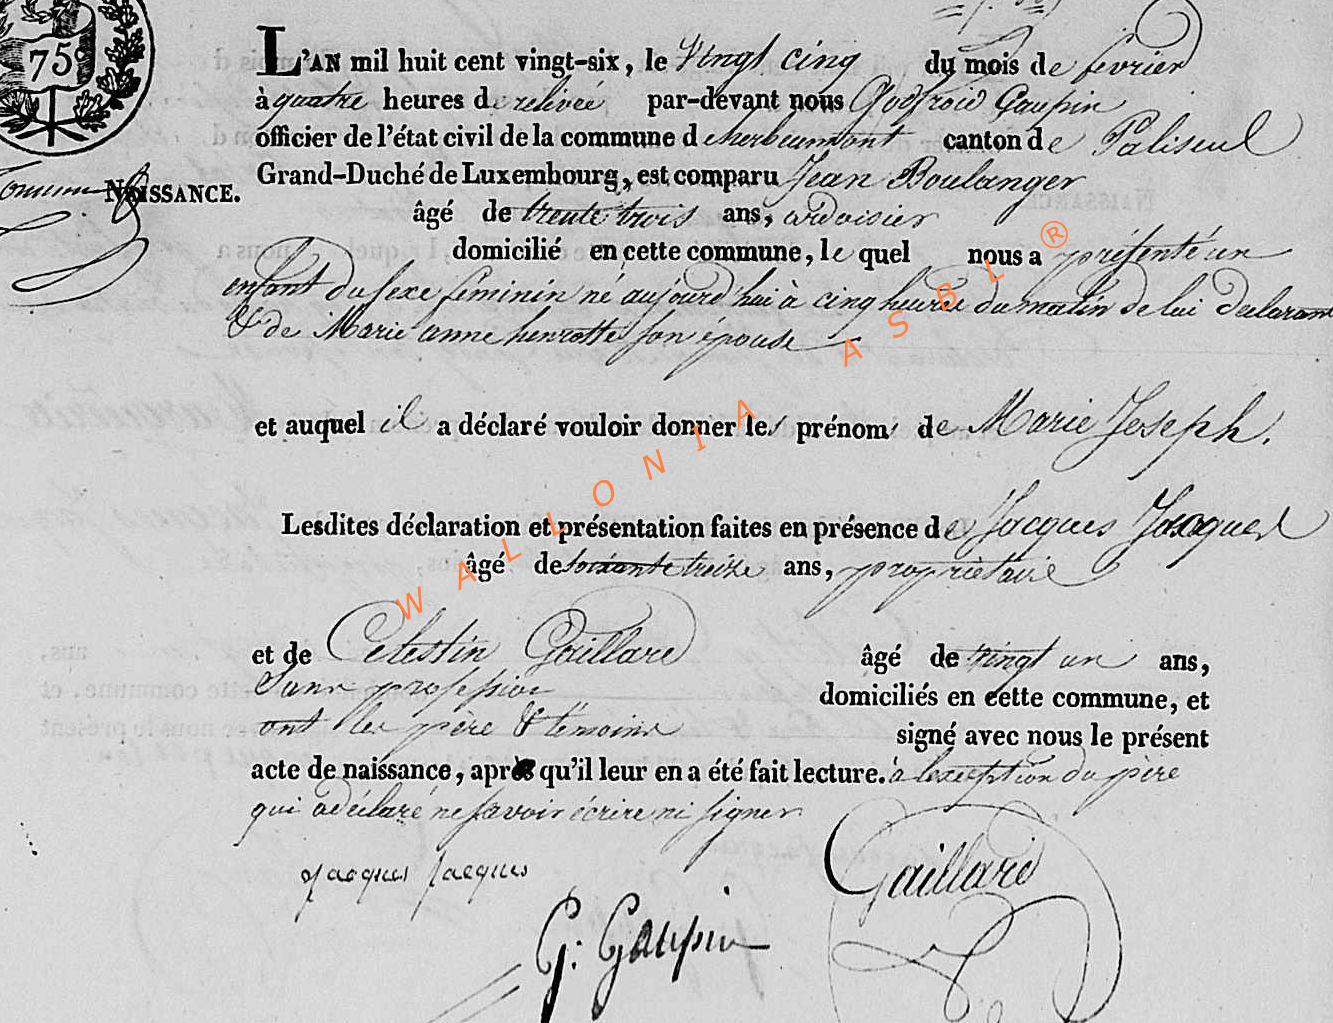 75
L'AN mil huit cent vingt-six, le vingt cinq du mois de fevrier
à quatre heures de relevée par-devant nous Godfroid Gaupin
officier de l'état civil de la commune d'herbeumont canton de Paliseul
Grand-Duché de Luxembourg, est comparu Jean Boulanger
NAISSANCE.
âgé de trente trois ans, ardoisier
domicilié en cette commune, le quel nous a présenté un
enfant du sexe féminin né aujourd'hui à cinq heures du matin de lui declarant
& de Marie anne henrotte son épouse
et auquel il a déclaré vouloir donner les prénoms de Marie Joseph.
Lesdites déclaration et présentation faites en présence de Jacques Jacques
âgé de soixante treize ans, propriétaire
et de Celestin Gaillard âgé de vingt un ans,
sans profession domiciliés en cette commune, et
ont les père & témoins signé avec nous le présent
acte de naissance, après qu'il leur en a été fait lecture. à l'exception du père
qui a déclaré ne savoir écrire ni signer
Jacques Jacques
Gaillard
G: Gaupin
WALLONIA ASBL ®